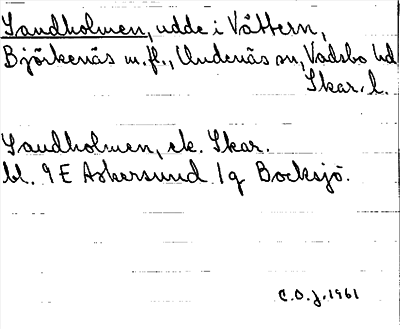 Sandholmen, udde i Vättern,
Björkenäs m.fl., Undenäs sn, Vadsbo hd
Skar. l.
Sandholmen, ek. Skar.
bl. 9 E Askersund 1 g Bocksjö.
C.O.J. 1961